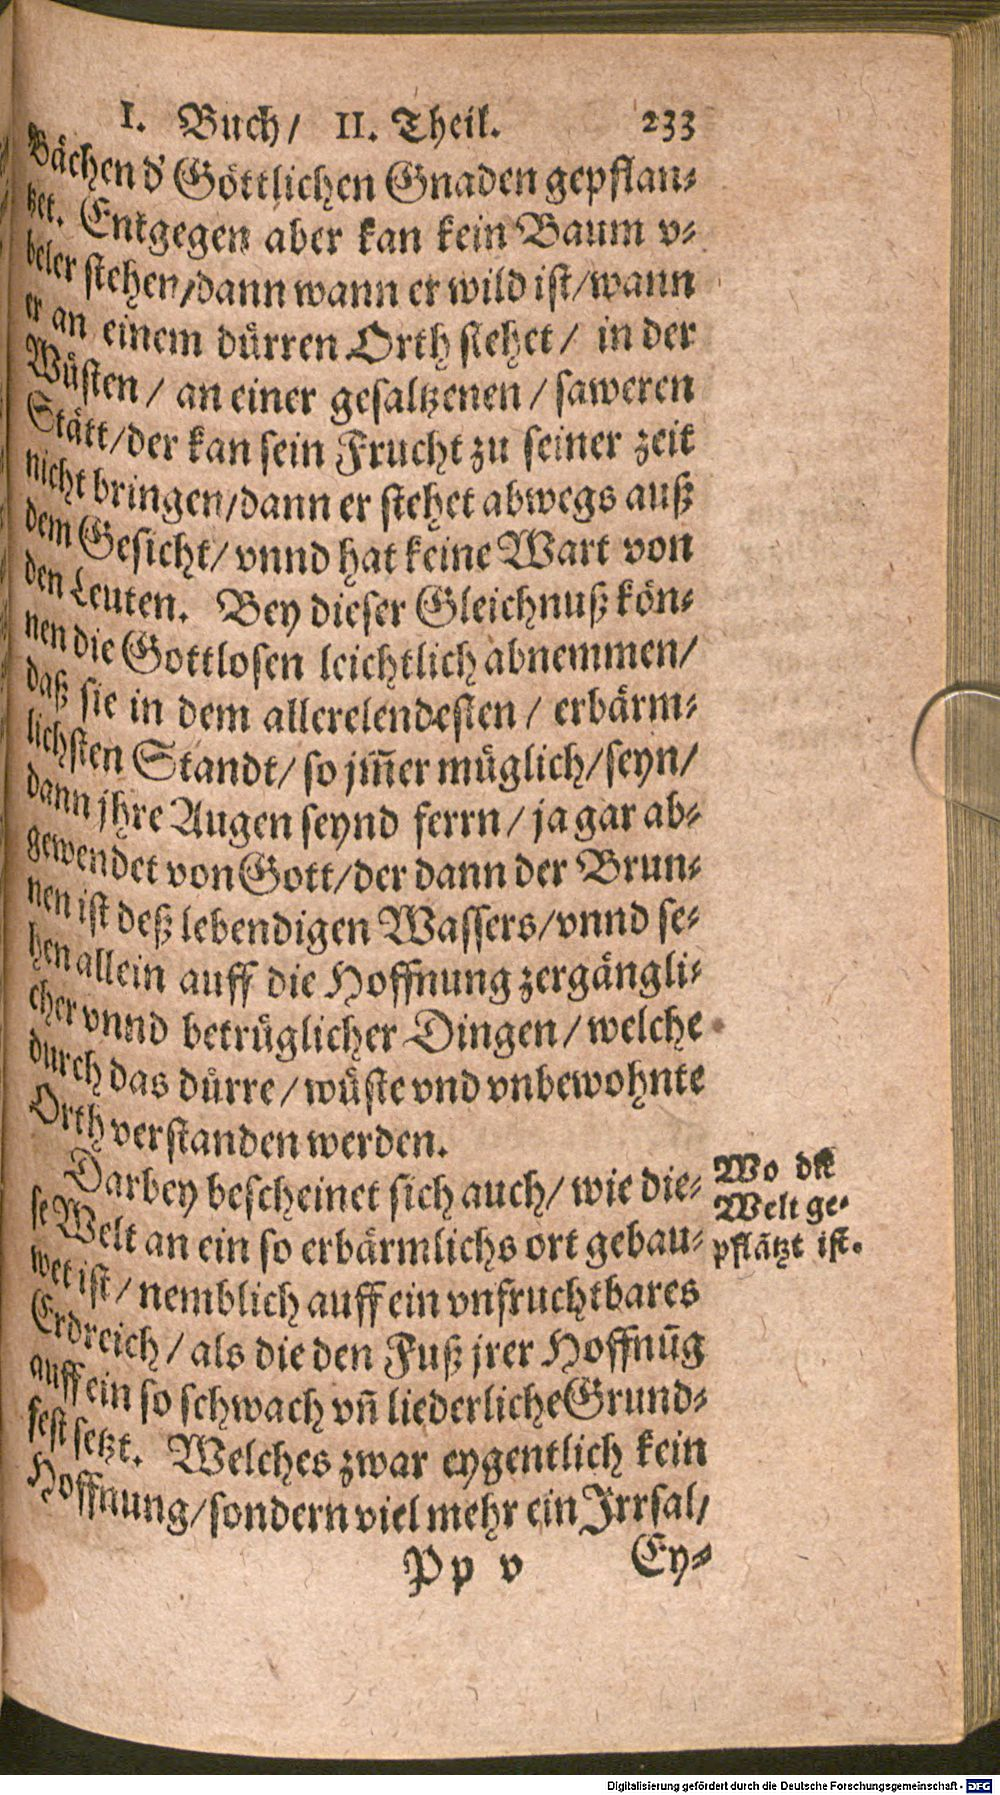 I. Buch/ II. Theil. 233
Bächen d' Göttlichen Gnaden gepflan-
tzet. Entgegen aber kan kein Baum v-
beler stehen/dann wann er wild ist/wann
er an einem dürren Orth stehet/ in der
Wüsten/ an einer gesaltzenen/ saweren
Stätt/der kan sein Frucht zu seiner zeit
nicht bringen/dann er stehet abwegs auß
dem Gesicht/ vnnd hat keine Wart von
den Leuten. Bey dieser Gleichnuß kön-
nen die Gottlosen leichtlich abnemmen/
daß sie in dem allerelendesten/ erbärm-
lichsten Standt/ so jm̃er müglich/seyn/
dann jhre Augen seynd ferrn/ ja gar ab-
gewendet von Gott/der dann der Brun-
nen ist deß lebendigen Wassers/vnnd se-
hen allein auff die Hoffnung zergängli-
cher vnnd betrüglicher Dingen/ welche
durch das dürre/ wüste vnd vnbewohnte
Orth verstanden werden.
Darbey bescheinet sich auch/ wie die-
se Welt an ein so erbärmlichs ort gebau-
wet ist/ nemblich auff ein vnfruchtbares
Erdreich/ als die den Fuß jrer Hoffnũg
auff ein so schwach vñ liederliche Grund-
fest setzt. Welches zwar eygentlich kein
Hoffnung/sondern viel mehr ein Irrsal/
Pp v Ey-
Wo die
Welt ge-
pflätzt ist.
Digitalisierung gefördert durch die Deutsche Forschungsgemeinschaft - DFG